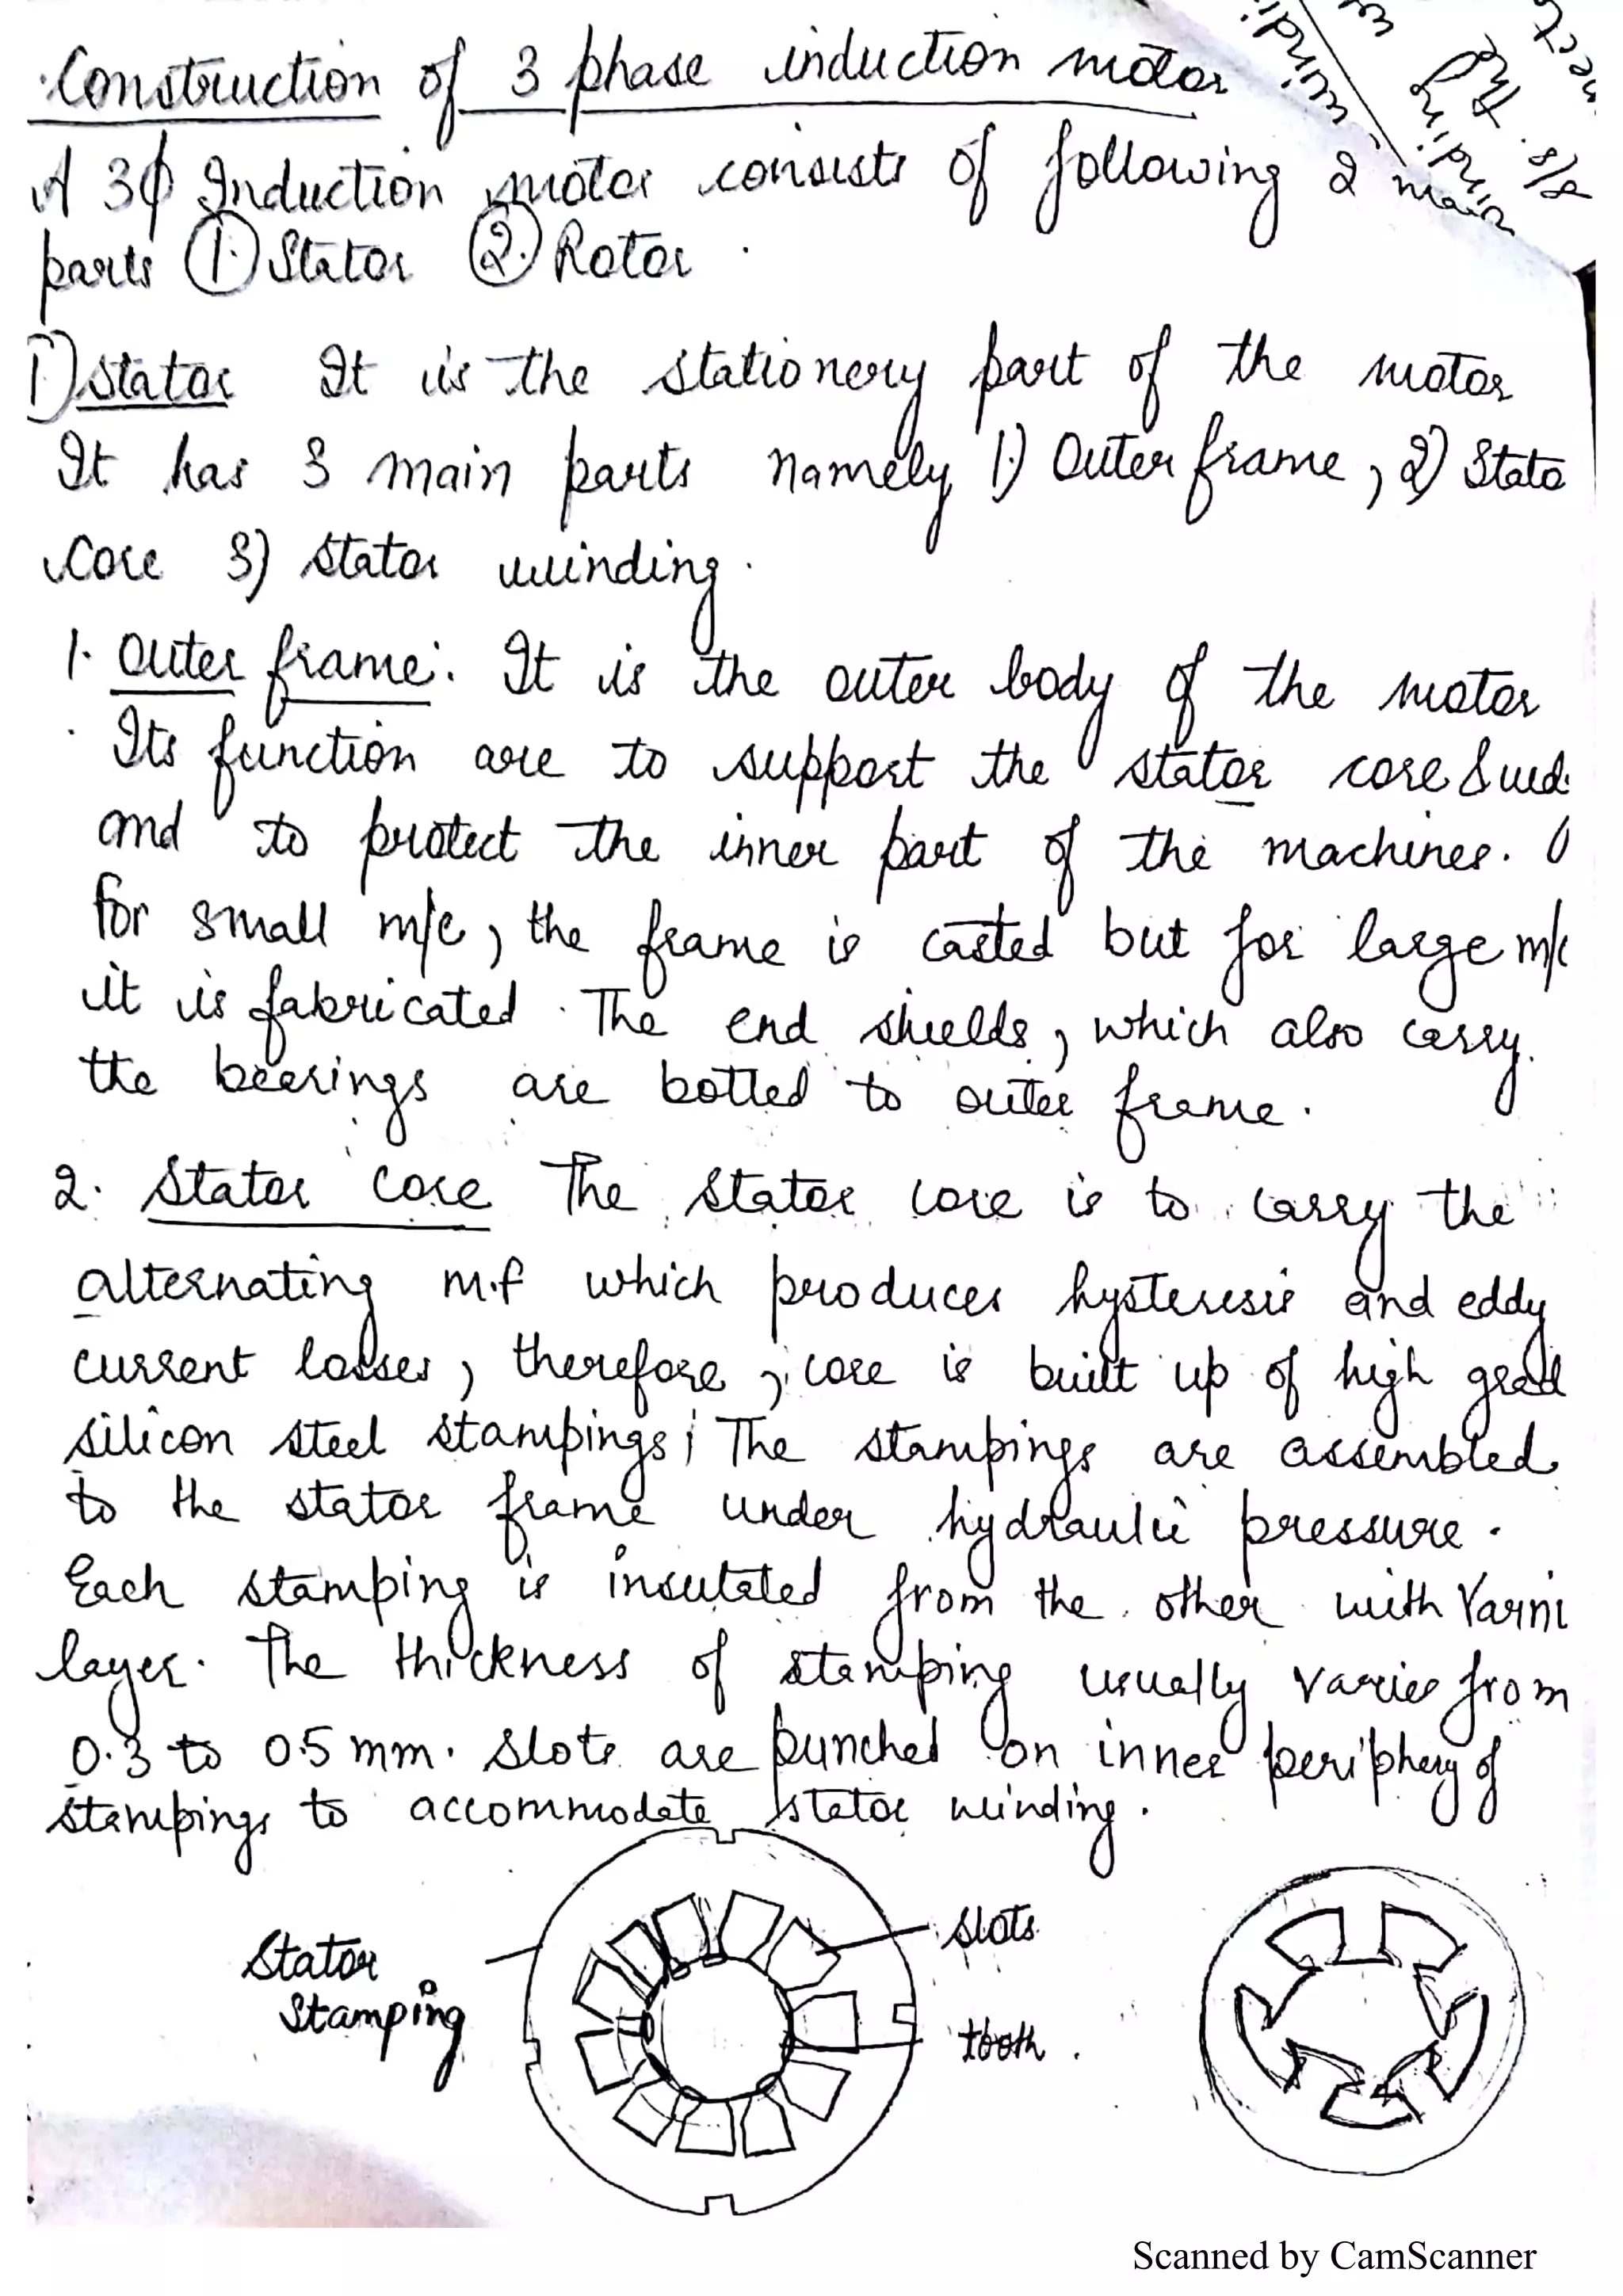 Construction of 3 phase induction motor
A 3ϕ Induction motor consists of following 2 main
parts 1. Stator 2. Rotor.
1) Stator It is the stationery part of the motor
It has 3 main parts namely 1) Outer frame, 2) Stato
Core 3) Stator winding.
1. Outer frame: It is the outer body of the motor
Its function are to support the stator core &
and to protect the inner part of the machines.
for small m/c, the frame is casted but for large m/c
it is fabricated. The end shields, which also carry
the bearings are bolted to outer frame.
2. Stator core The stator core is to carry the
alternating m.f which produces hysteresis and eddy
current losses, therefore, core is built up of high grad
silicon steel stampings; The stampings are assembled
to the stator frame under hydraulic pressure.
Each stamping is insulated from the other with Varni
layer. The thickness of stamping usually varies from
0.3 to 0.5 mm. Slots are punched on inner periphery of
stampings to accommodate stator winding.
Stator
Stamping
Slots
tooth.
winding
the
Scanned by CamScanner